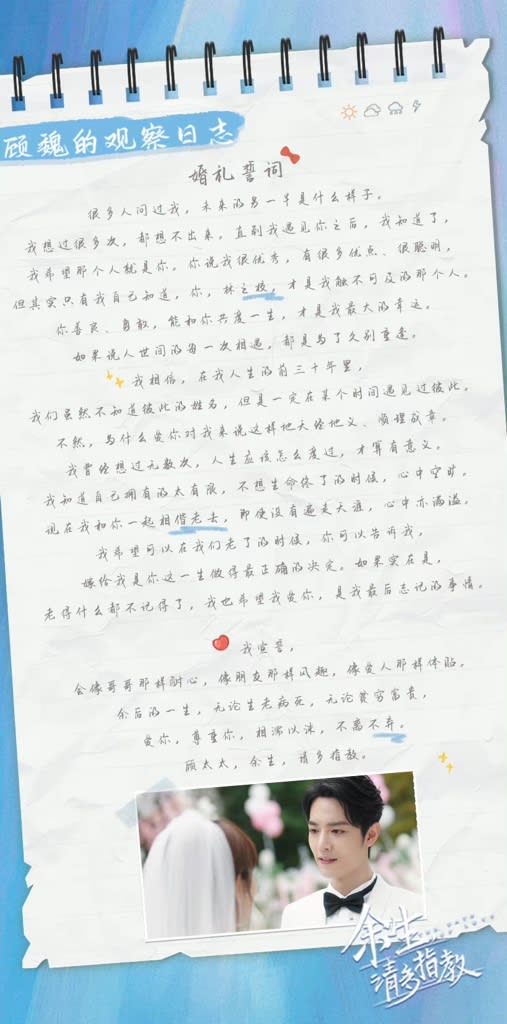 顾魏的观察日志
婚礼誓词
很多人问过我，未来的另一半是什么样子。
我想过很多次，都想不出来。直到我遇见你之后，我知道了，
我希望那个人就是你。你说我很优秀，有很多优点、很聪明，
但其实只有我自己知道，你，林之校，才是我触不可及的那个人。
你善良、勇敢，能和你共度一生，才是我最大的幸运。
如果说人世间的每一次相遇，都是为了久别重逢。
我相信，在我人生的前三十年里，
我们虽然不知道彼此的姓名，但是一定在某个时间遇见过彼此。
不然，为什么爱你对我来说这样地天经地义、顺理成章。
我曾经想过无数次，人生应该怎么度过，才算有意义。
我知道自己拥有的太有限，不想生命休了的时候，心中空旷。
现在我和你一起相偕老去，即使没有遍走天涯，心中亦满溢。
我希望可以在我们老了的时候，你可以告诉我，
嫁给我是你这一生做得最正确的决定。如果实在是，
老得什么都不记得了，我也希望我爱你，是我最后忘记的事情。
我宣誓，
会像哥哥那样耐心，像朋友那样风趣，像爱人那样体贴。
余后的一生，无论生老病死，无论贫穷富贵，
爱你，尊重你，相濡以沫，不离不弃。
顾太太，余生，请多指教。
余生
请多指教